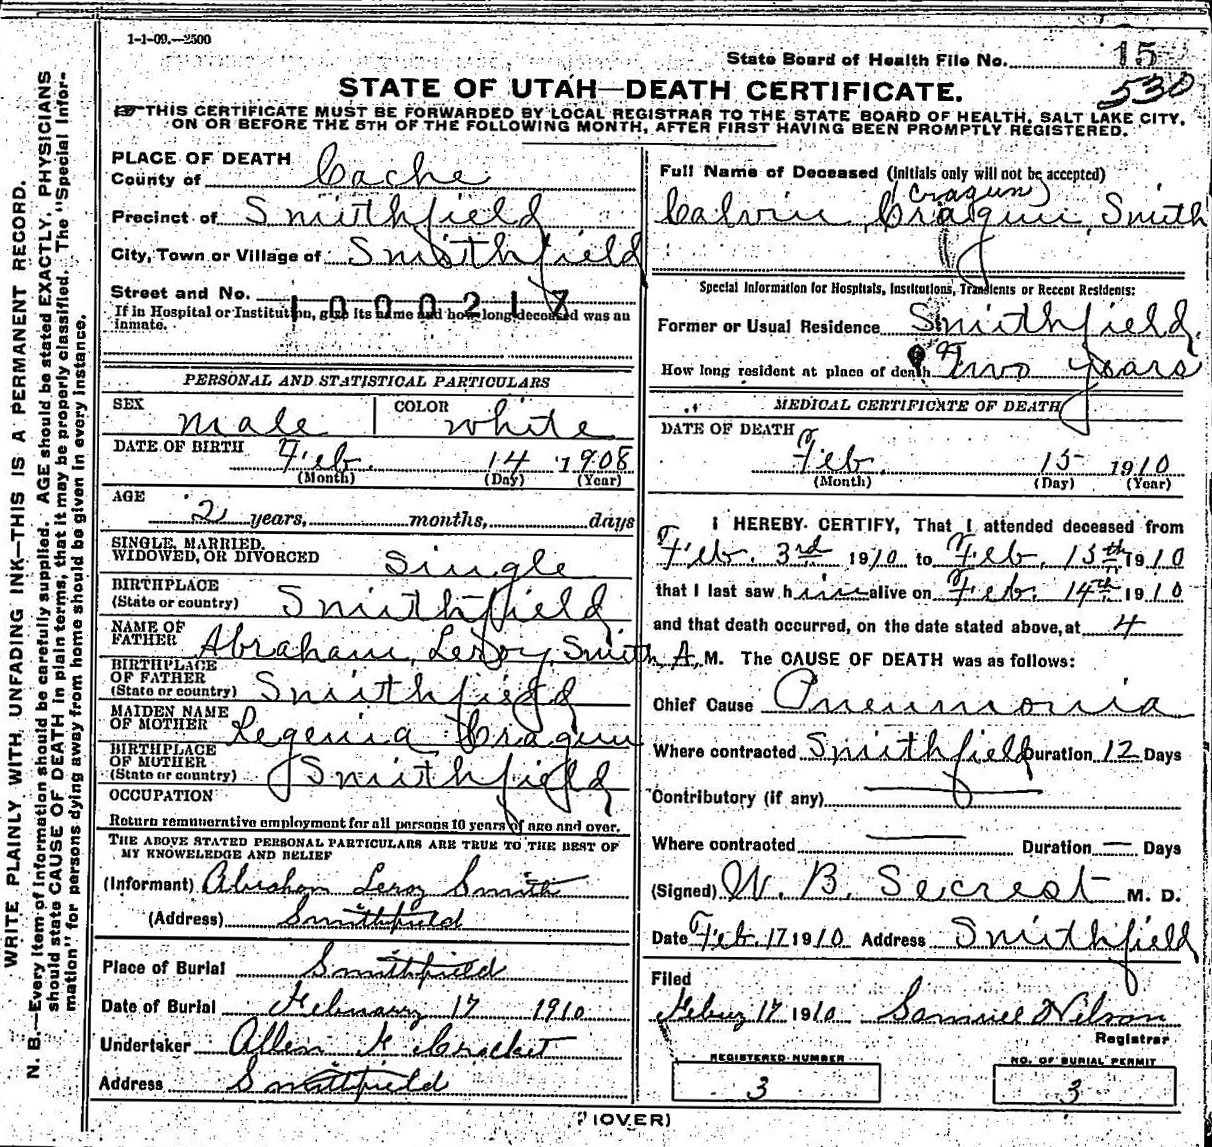 1-1-09.—2500
State Board of Health File No. 15
530
STATE OF UTAH—DEATH CERTIFICATE.
THIS CERTIFICATE MUST BE FORWARDED BY LOCAL REGISTRAR TO THE STATE BOARD OF HEALTH, SALT LAKE CITY,
ON OR BEFORE THE 5TH OF THE FOLLOWING MONTH, AFTER FIRST HAVING BEEN PROMPTLY REGISTERED.
WRITE PLAINLY WITH UNFADING INK—THIS IS A PERMANENT RECORD.
N. B.—Every item of information should be carefully supplied. AGE should be stated EXACTLY. PHYSICIANS
should state CAUSE OF DEATH in plain terms, that it may be properly classified. The "Special Infor-
mation" for persons dying away from home should be given in every instance.
PLACE OF DEATH
County of Cache
Precinct of Smithfield
City, Town or Village of Smithfield
Street and No.
1000217
If in Hospital or Institution, give its name and how long deceased was an
inmate.
PERSONAL AND STATISTICAL PARTICULARS
SEX male COLOR white
DATE OF BIRTH Feb. 14 1908
(Month) (Day) (Year)
AGE
2 years, months, days
SINGLE, MARRIED,
WIDOWED, OR DIVORCED Single
BIRTHPLACE
(State or country) Smithfield
NAME OF
FATHER Abraham, LeRoy, Smith
BIRTHPLACE
OF FATHER
(State or country) Smithfield
MAIDEN NAME
OF MOTHER Regenia Cragun
BIRTHPLACE
OF MOTHER
(State or country) Smithfield
OCCUPATION
Return remunerative employment for all persons 10 years of age and over.
THE ABOVE STATED PERSONAL PARTICULARS ARE TRUE TO THE BEST OF
MY KNOWELEDGE AND BELIEF
(Informant) Abraham Leroy Smith
(Address) Smithfield
Place of Burial Smithfield
Date of Burial February 17 1910
Undertaker Allen
Address Smithfield
Full Name of Deceased (Initials only will not be accepted)
(Cragun)
Calvin Cragun Smith
Special Information for Hospitals, Institutions, Transients or Recent Residents:
Former or Usual Residence Smithfield.
How long resident at place of death Two years
MEDICAL CERTIFICATE OF DEATH
DATE OF DEATH
Feb. 15 1910
(Month) (Day) (Year)
I HEREBY CERTIFY, That I attended deceased from
Feb. 3rd 1910 to Feb. 15th 1910
that I last saw him alive on Feb. 14th 1910
and that death occurred, on the date stated above, at 4
A. M. The CAUSE OF DEATH was as follows:
Chief Cause Pneumonia
Where contracted Smithfield Duration 12 Days
Contributory (if any) —
Where contracted — Duration — Days
(Signed) W. B. Secrest M. D.
Date Feb 17 1910 Address Smithfield
Filed
17 1910 Samuel Nilson
Registrar
REGISTERED NUMBER
3
NO. OF BURIAL PERMIT
3
(OVER)